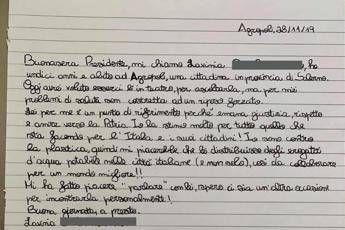 Agropoli, 28/11/19
Buonasera Presidente, mi chiamo Lavinia, ho
undici anni e abito ad Agropoli, una cittadina in provincia di Salerno.
Oggi avrei voluto esserci lì in teatro, per ascoltarla, ma per miei
problemi di saluti sono costretta ad un riposo forzato.
Lei per me è un punto di riferimento perché emana giustizia, rispetto
e amore verso la Patria. Io la stimo molto per tutto quello che
sta facendo per l'Italia e i suoi cittadini! Io sono contro
la plastica, quindi mi piacerebbe che lei distribuisse degli erogatori
d'acqua potabile nelle città italiane (e non solo), così da collaborare
per un mondo migliore!!
Mi ha fatto piacere "parlare" con lei, spero ci sia un'altra occasione
per incontrarla personalmente!
Buona giornata, a presto.
Lavinia